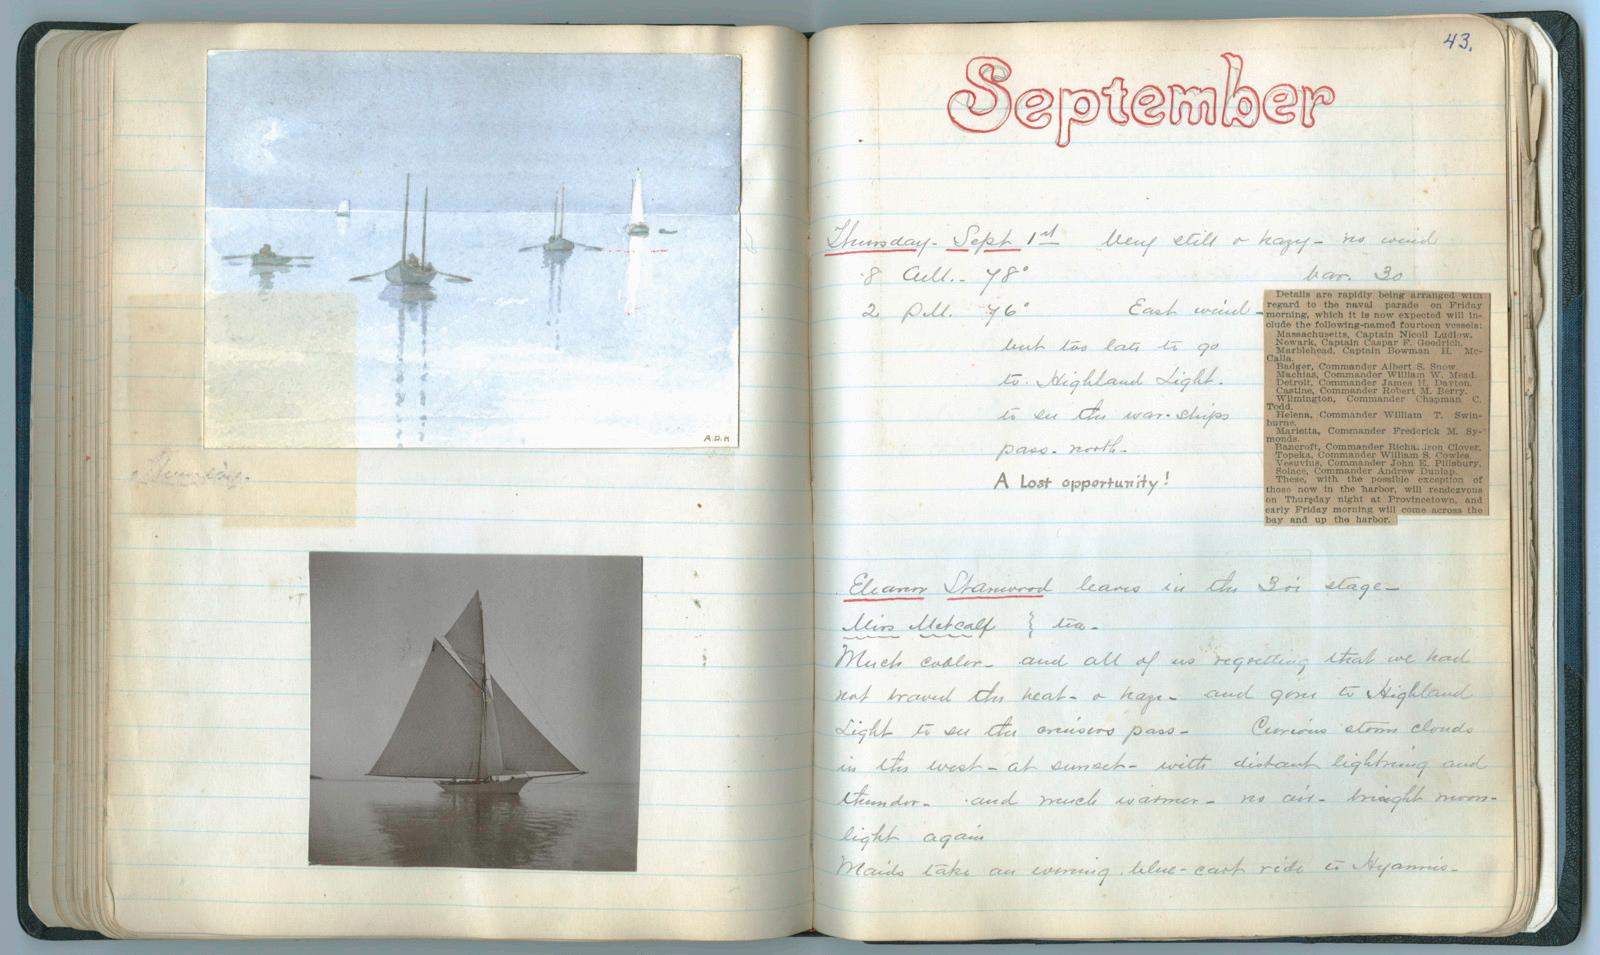 A.D.H
43.
September
Thursday - Sept 1st Very still & hazy - no wind
8 A.M. - 78° bar. 30
2 P.M. 76° East wind -
but too late to go
to Highland Light.
to see the war-ships
pass north -
A Lost opportunity!
Details are rapidly being arranged with
regard to the naval parade on Friday
morning, which it is now expected will in-
clude the following-named fourteen vessels:
Massachusetts, Captain Nicoll Ludlow.
Newark, Captain Caspar F. Goodrich.
Marblehead, Captain Bowman H. Mc-
Calla.
Badger, Commander Albert S. Snow.
Machias, Commander William W. Mead.
Detroit, Commander James H. Dayton.
Castine, Commander Robert M. Berry.
Wilmington, Commander Chapman C.
Todd.
Helena, Commander William T. Swin-
burne.
Marietta, Commander Frederick M. Sy-
monds.
Bancroft, Commander Richardson Clover.
Topeka, Commander William S. Cowles.
Vesuvius, Commander John E. Pillsbury.
Solace, Commander Andrew Dunlap.
These, with the possible exception of
those now in the harbor, will rendezvous
on Thursday night at Provincetown, and
early Friday morning will come across the
bay and up the harbor.
Eleanor Stanwood leaves in the stage -
Miss Metcalf } tea -
Much cooler - and all of us regretting that we had
not braved the heat - & haze - and gone to Highland
Light to see the cruisers pass - Curious storm clouds
in the west - at sunset - with distant lightning and
thunder - and much warmer - no air - bright moon-
light again
Maids take an evening blue-cart ride to Hyannis -